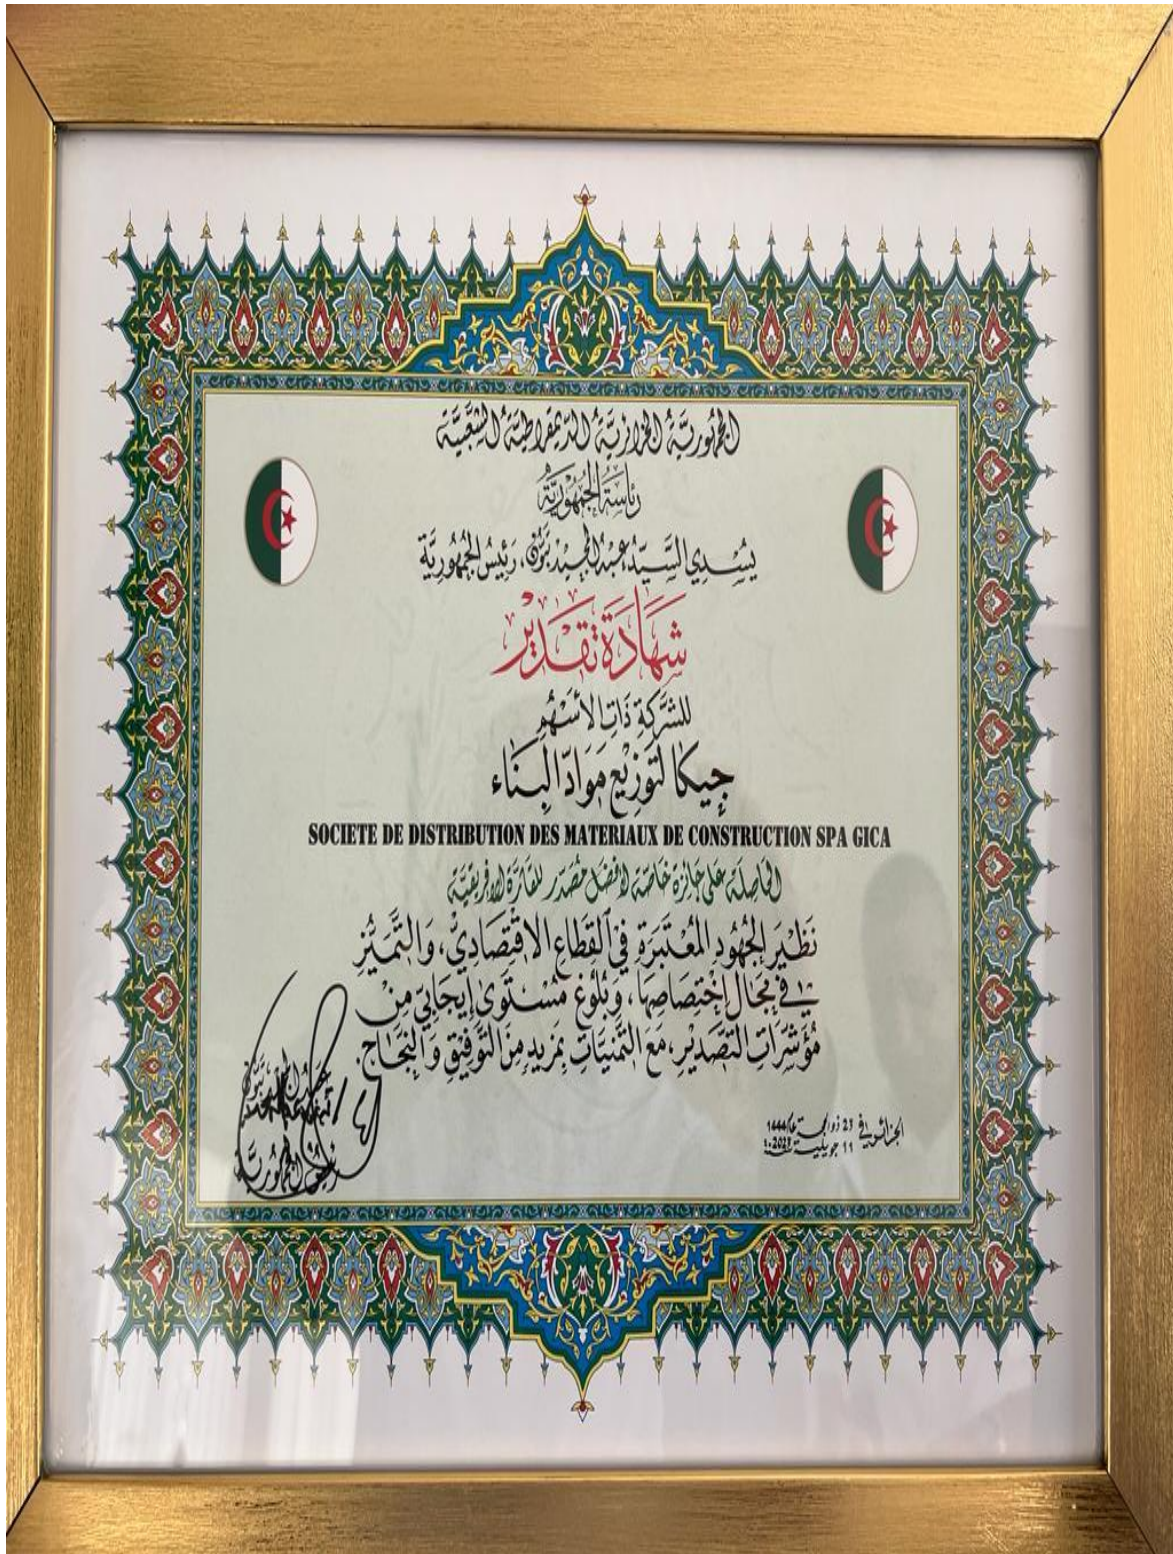 الجمهورية الجزائرية الديمقراطية الشعبية
رئاسة الجمهورية
يُسدي السيّد عبد المجيد تبون، رئيس الجمهورية
شهادة تقدير
للشركة ذات الأسهم
جيكا لتوزيع موادّ البناء
SOCIETE DE DISTRIBUTION DES MATERIAUX DE CONSTRUCTION SPA GICA
الحاصلة على جائزة خاصة لأفضل مصدر للقارة الإفريقية
نظير الجهود المعتبرة في القطاع الاقتصادي، والتميّز
في مجال اختصاصها، وبلوغ مستوى إيجابي من
مؤشرات التصدير، مع التمنيات بمزيد من التوفيق والنجاح.
الجزائر في 23 ذو الحجة 1444
11 جويلية 2023
عبد المجيد تبون
رئيس الجمهورية